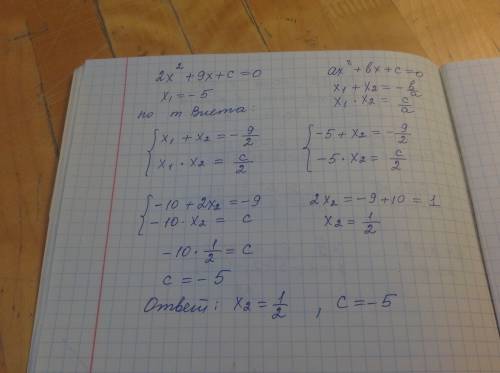 2x² + 9x + c = 0
x₁ = -5
по т Виета:
{ x₁ + x₂ = -9/2
{ x₁ · x₂ = c/2
ax² + bx + c = 0
x₁ + x₂ = -b/a
x₁ · x₂ = c/a
{ -5 + x₂ = -9/2
{ -5 · x₂ = c/2
{ -10 + 2x₂ = -9
{ -10 · x₂ = c
2x₂ = -9 + 10 = 1
x₂ = 1/2
-10 · 1/2 = c
c = -5
Ответ: x₂ = 1/2 , c = -5